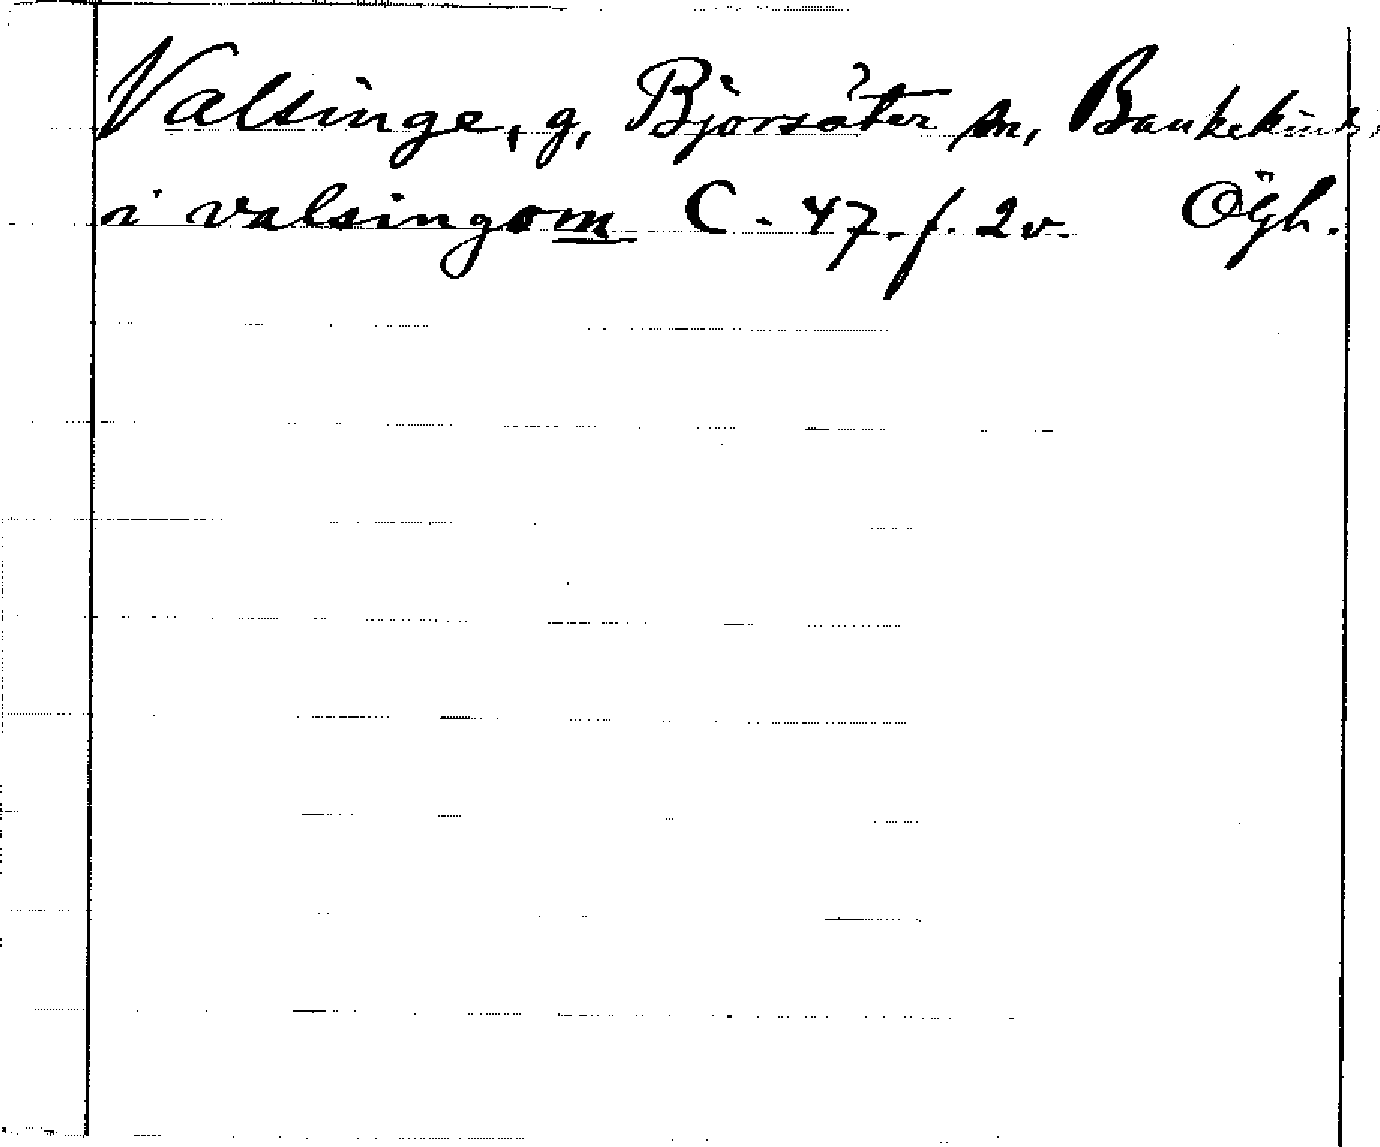 Valsinge, g, Björsäter sn, Bankekinds
i valsingom C-47. f. 2v. Ögh.